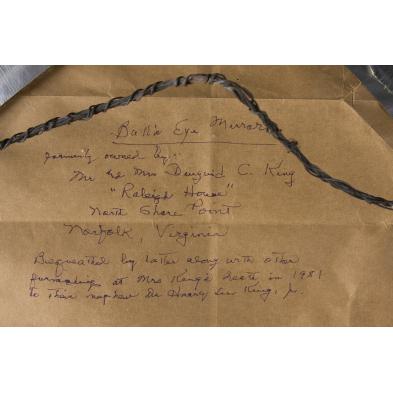 Bull's Eye Mirror
formerly owned by:
Mr and Mrs Duguid C. King
"Raleigh House"
North Shore Point
Norfolk, Virginia
Bequeathed by latter along with other
furnishings at Mrs King's death in 1981
to their nephew Dr Henry Lee King, Jr.